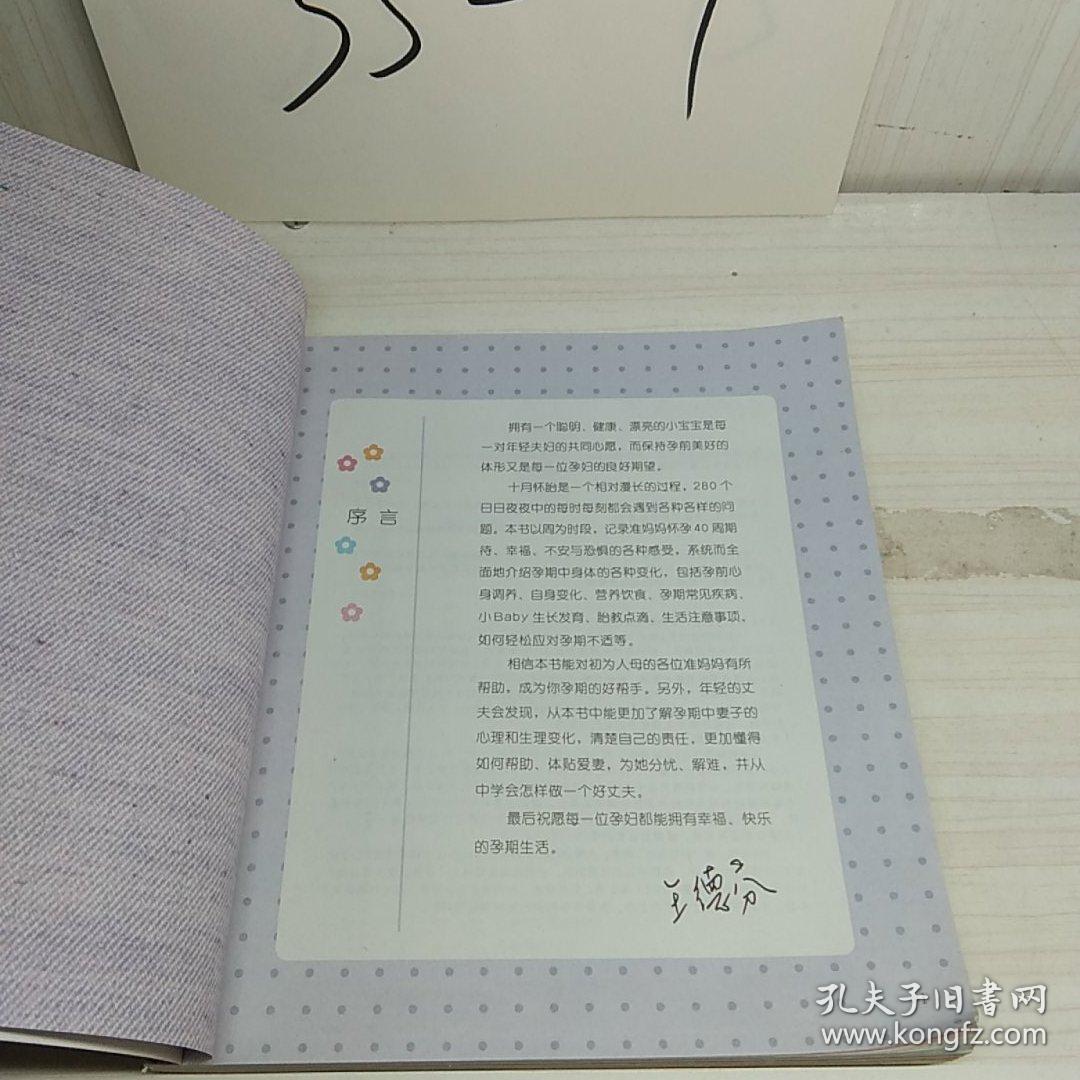 序言
拥有一个聪明、健康、漂亮的小宝宝是每
一对年轻夫妇的共同心愿，而保持孕前美好的
体形又是每一位孕妇的良好期望。
十月怀胎是一个相对漫长的过程，280个
日日夜夜中的每时每刻都会遇到各种各样的问
题。本书以周为时段，记录准妈妈怀孕40周期
待、幸福、不安与恐惧的各种感受，系统而全
面地介绍孕期中身体的各种变化，包括孕前心
身调养、自身变化、营养饮食、孕期常见疾病、
小Baby生长发育、胎教点滴、生活注意事项，
如何轻松应对孕期不适等。
相信本书能对初为人母的各位准妈妈有所
帮助，成为你孕期的好帮手。另外，年轻的丈
夫会发现，从本书中能更加了解孕期中妻子的
心理和生理变化，清楚自己的责任，更加懂得
如何帮助、体贴爱妻，为她分忧、解难，并从
中学会怎样做一个好丈夫。
最后祝愿每一位孕妇都能拥有幸福、快乐
的孕期生活。
王德芬
孔夫子旧書网
www.kongfz.com